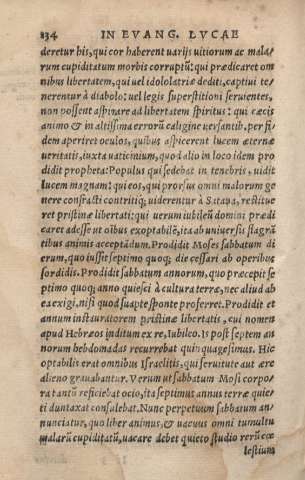 234 IN EVANG. LVCAE
deretur his, qui cor haberent uarijs uitiorum ac mala-
rum cupiditatum morbis corruptũ: qui prædicaret om
nibus libertatem, qui uel idololatriæ dediti, captiui te-
nerentur à diabolo: uel legis superstitioni seruientes,
non possent aspirare ad libertatem spiritus: qui cæcis
animo & in altissima errorũ caligine uersantib. per fi-
dem aperiret oculos, quibus aspicerent lucem æternæ
ueritatis, iuxta uaticinium, quod alio in loco idem pro
didit propheta: Populus qui sedebat in tenebris, uidit
lucem magnam: qui eos, qui prorsus omni malorum ge
nere confracti contritiq; uiderentur à Satana, restitue
ret pristinæ libertati: qui uerum iubileũ domini prædi
caret adesse ut oibus exoptabilẽ, ita ab uniuersis flagrã
tibus animis acceptãdum. Prodidit Moses sabbatum di
erum, quo iussit septimo quoq; die cessari ab operibus
sordidis. Prodidit sabbatum annorum, quo præcepit se
ptimo quoq; anno quiesci à cultura terræ, nec aliud ab
ea exigi, nisi quod suapte sponte proferret. Prodidit et
annum instauratorem pristinæ libertatis, cui nomen
apud Hebræos inditum ex re, Iubileo. Is post septem an
norum hebdomadas recurrebat quinquagesimus. Hic
optabilis erat omnibus Israelitis, qui seruitute aut ære
alieno grauabantur. Verum ut sabbatum Mosi corpo-
ra tantũ reficiebat ocio, ita septimus annus terræ quie-
ti duntaxat consulebat. Nunc perpetuum sabbatum an-
nunciatur, quo liber animus, & uacuus omni tumultu
malarũ cupiditatũ, uacare debet quieto studio rerũ cœ
lestium